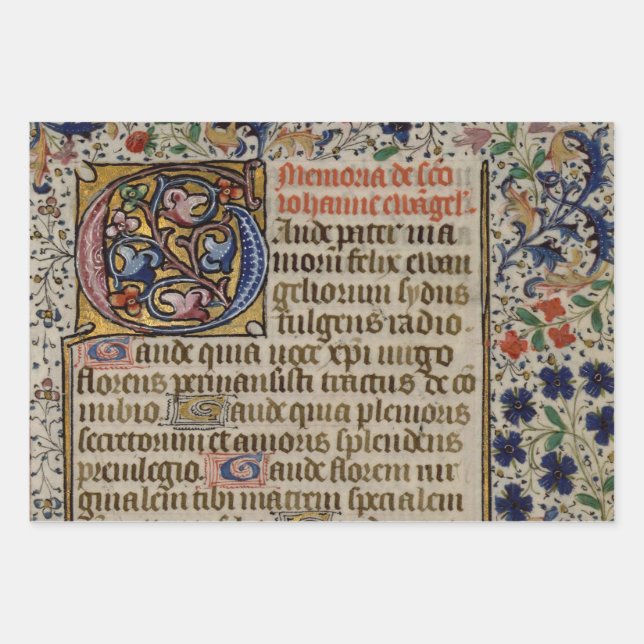 Memoria de sc̄o
iohanne ewāgel'.
Gaude pater uia
morū felix ewan
geliorum sydus
fulgens radio.
Gaude quia uoce xp̄i uirgo
florens permansisti tractus de cō
nubio. Gaude quia plenioris
secretorum et amoris splendens
preuilegio. Gaude florem uir
ginalem tibi matrem specialem